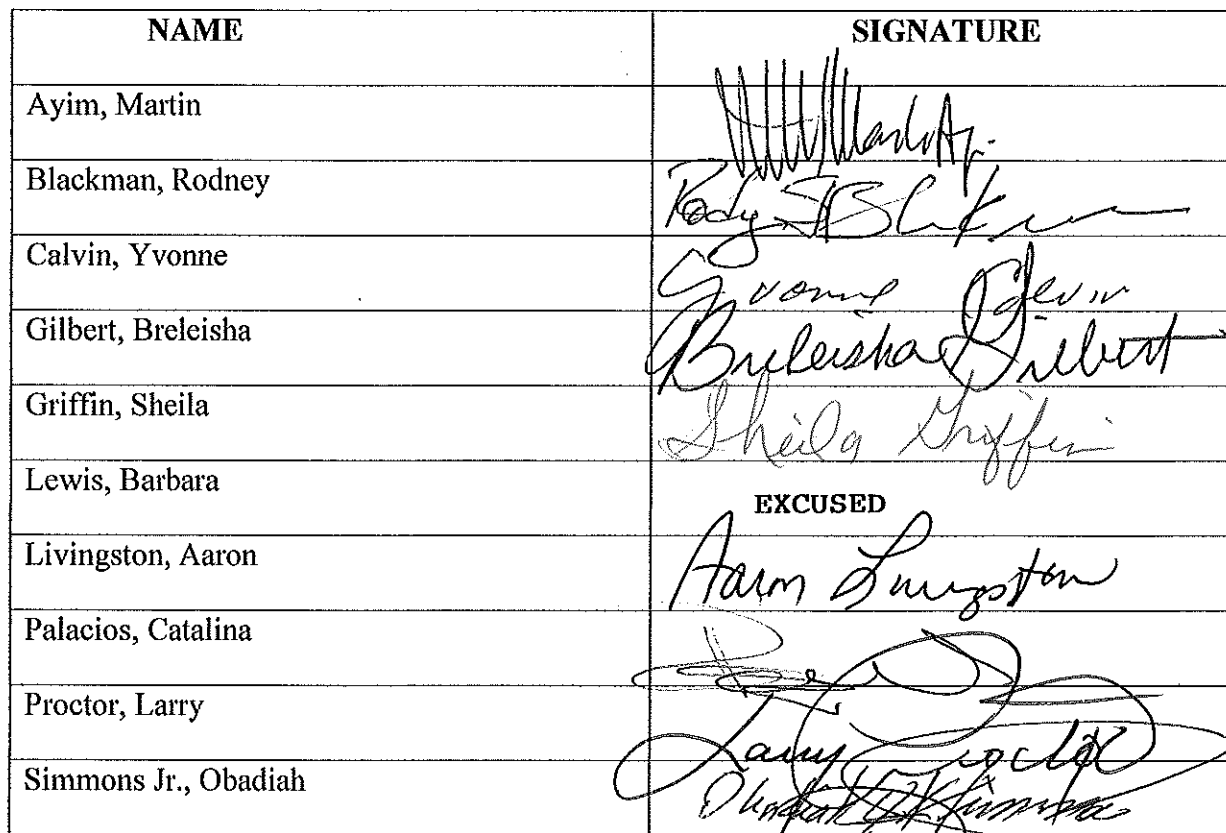 NAME SIGNATURE
Ayim, Martin
Blackman, Rodney
Calvin, Yvonne Yvonne Calvin
Gilbert, Breleisha Breleisha Gilbert
Griffin, Sheila Sheila Griffin
Lewis, Barbara EXCUSED
Livingston, Aaron Aaron Livingston
Palacios, Catalina
Proctor, Larry Larry Proctor
Simmons Jr., Obadiah Obadiah Simmons